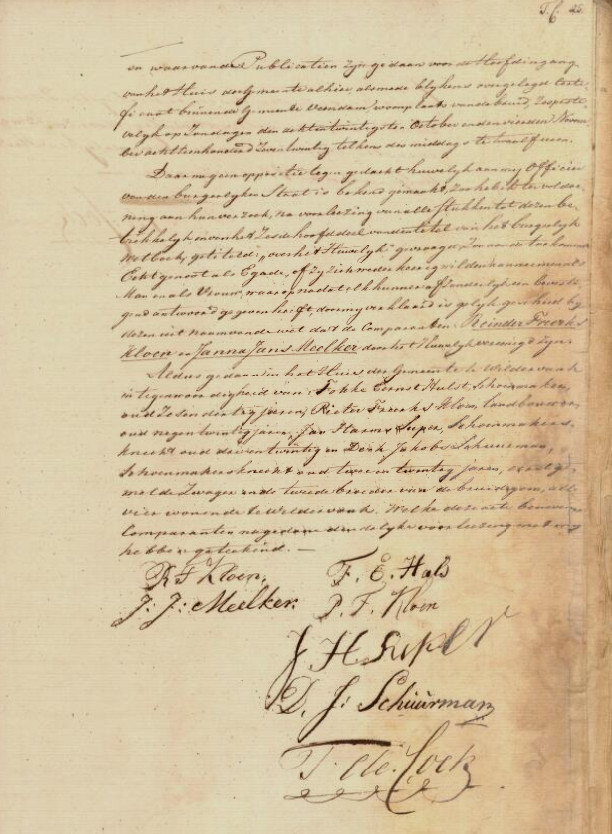 en waarvan de Publicatien zyn gedaan voor de Hoofdingang
van het Huis der Gemeente alhier alsmede blykens overgelegd certi-
ficaat binnen de Gemeente Veendam, woonplaats van de bruid, respecti-
velyk op Zondagen den acht en twintigste October en den vierden Novem
ber achttienhonderd zeven twintig telkens des middags te twaalf uren.
Daar my geen oppositie tegen gedacht huwelyk aan my Officier
van den burgerlyken Staat is bekend gemaakt, zoo heb ik ter voldoe-
ning aan hun verzoek, na voorlezing van alle stukken tot dezen be-
trekkelyk en van het Zesde hoofddeel van den titel van het burgerlyk
Wetboek, getiteld: "over het Huwelyk" gevraagd, aan de toekomende
Echtgenoot als Egade, of zy zich wederkeerig wilden aannemen als
Man en als Vrouw, waarop nadat elk hunner afzonderlyk een bevesti-
gend antwoord gegeven heeft, door my verklaard is gelyk geschied by
dezen uit naam van de wet dat de Comparanten: Reinder Freerks
Kloen en Janna Jans Meelker door het Huwelyk vereenigd zyn.
Aldus gedaan in het Huis der Gemeente te Wildervank
in tegenwoordigheid van: Fokke Eernst Hulst, Schoenmaker,
oud zes en dertig jaren, Pieter Freerks Kloen, landbouwer,
oud negentwintig jaren, Jan Harms Super, Schoenmakers
knecht oud drie en twintig en Derk Jakobs Schuurman,
Schoenmakersknecht oud twee en twintig jaren, eerstge-
melde Zwager en de tweede broeder van de bruidegom, alle
vier wonende te Wildervank. Welke deze acte benevens
Comparanten na gedane duidelyke voorlezing met my
hebben geteekend. —
R F Kloen.
F. E. Huls
J: J: Meelker.
P. F. Kloen
J H Super
D. J: Schüürman
T. de Cock